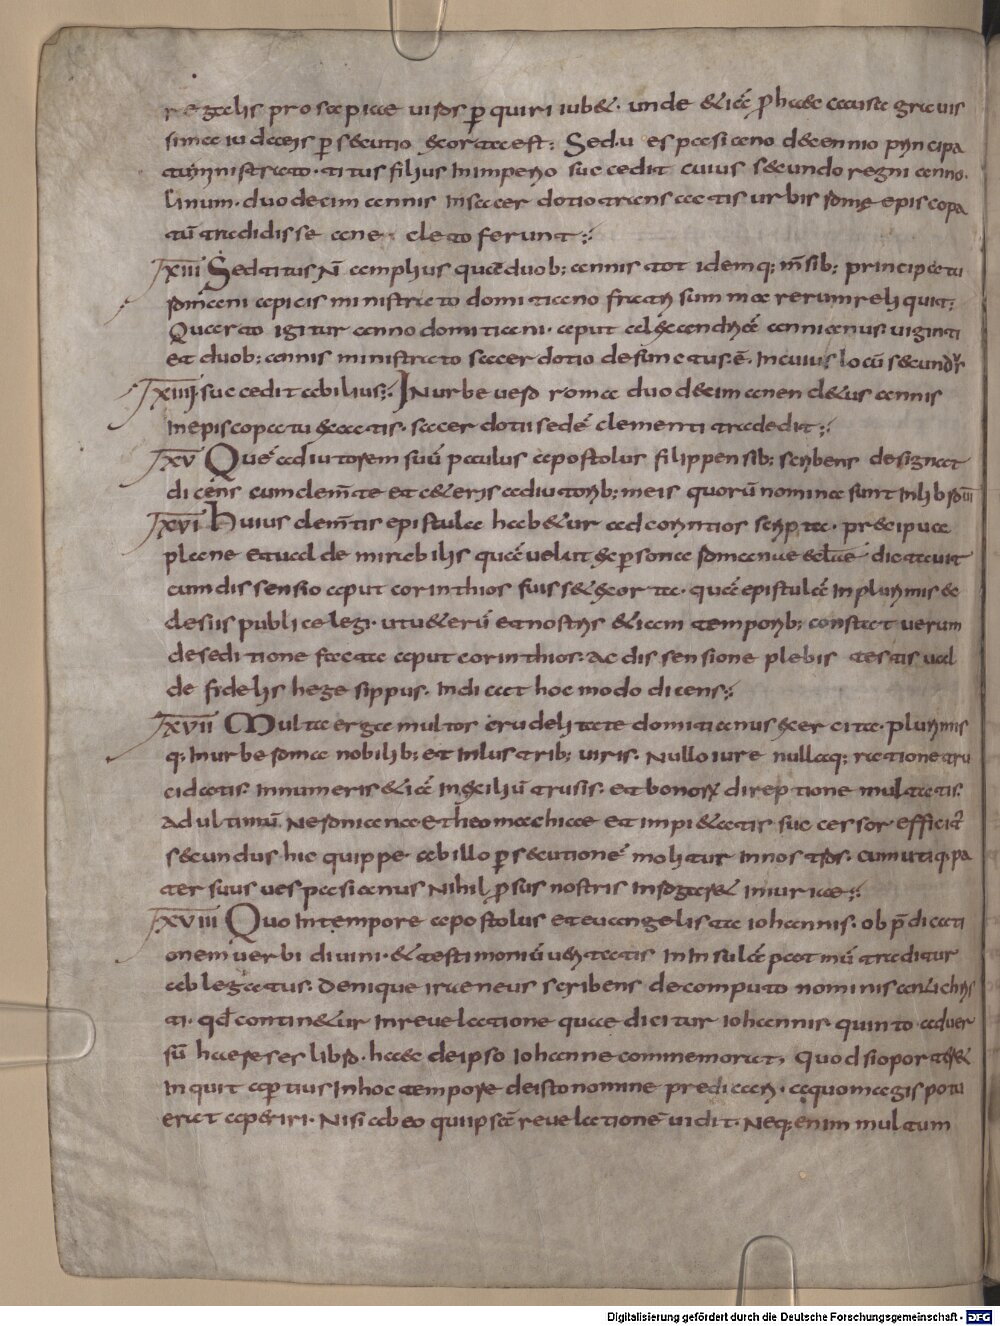 regalis prosapiae uiros p̱ quiri iub&. unde &iā p̱ haec causa grauis
sima iudaeis p̱secutio exorta est: Sed uespasiano decennio principa
tū ministrato. titus filius in imperio succedit cuius secundo regni anno.
linum. duodecim annis in sacerdotio transactis urbis romę episcopa
tū tradidisse anencleto ferunt:
XIII Sed titus n̄ amplius quā duob; annis totidemq; m̄sib; principatū
romani apicis ministrato domitiano fratri summa rerum reliquit:
Quarto igitur anno domitiani. aput alexandriā annianus. uiginti
et duob; annis ministrato sacerdotio defunctus. ē. in cuius locū secundꝰ
XIIII succedit abilius: In urbe uero roma duodecim anencletus annis
in episcopatu exactis. sacerdotii sedē clementi tradedit:
XV Quē adiutorem suū paulus apostolus filippensib; scribens designat
dicens cum clem̄te et c&eris adiutorib; meis quorū nomina sunt in libro uitę
XVI Huius clem̄tis epistula hab&ur ad corintios scripta. praecipuae
plene et ualde mirabilis quā uelut ex persona romanae ecl̄ae dictauit
cum dissensio aput corinthios fuis s& exorta. quā epistulā in plurimis ec
clesiis publice legi. ut u&erū et nostris &iam temporib; constat uerum
de seditione facta aput corinthios. ac dissensione plebis testis ual
de fidelis hegesippus. indicat hoc modo dicens:
XVII Multa erga multos crudelitate domitianus exercita. plurimis
q; in urbe roma nobilib; et inlustrib; uiris. nullo iure nullaq; ratione tru
cidatis. innumeris &iā in exiliū trusis. et bonorꝝ direptione multatis.
ad ultimū. neronianae theomachiae et impi&atis successor efficit᷑
secundus hic quippe. ab illo p̱secutionē molitur in nos t̄ros. cum utiq. pa
ter suus uespasianus nihil p̱sus nostris inrogass& iniuriae:
XVIII Quo in tempore apostolus et euangelista iohannis. ob p̄dicati
onem uerbi diuini. & testimoniū ueritatis in insulā patmū traditur
ablegatus. denique iraeneus scribens de computo nominis antichris
ti. qđ contin&ur in reuelatione quae dicitur iohannis quinto aduer
sū haereses libro. haec de ipso iohanne commemorat, Quod si oporter&
inquit apertius in hoc tempore de isto nomine praedicari. a quo magis potu
erat aperiri. nisi ab eo qui ipsā reuelationē uidit. Neq; enim multum
Digitalisierung gefördert durch die Deutsche Forschungsgemeinschaft - DFG